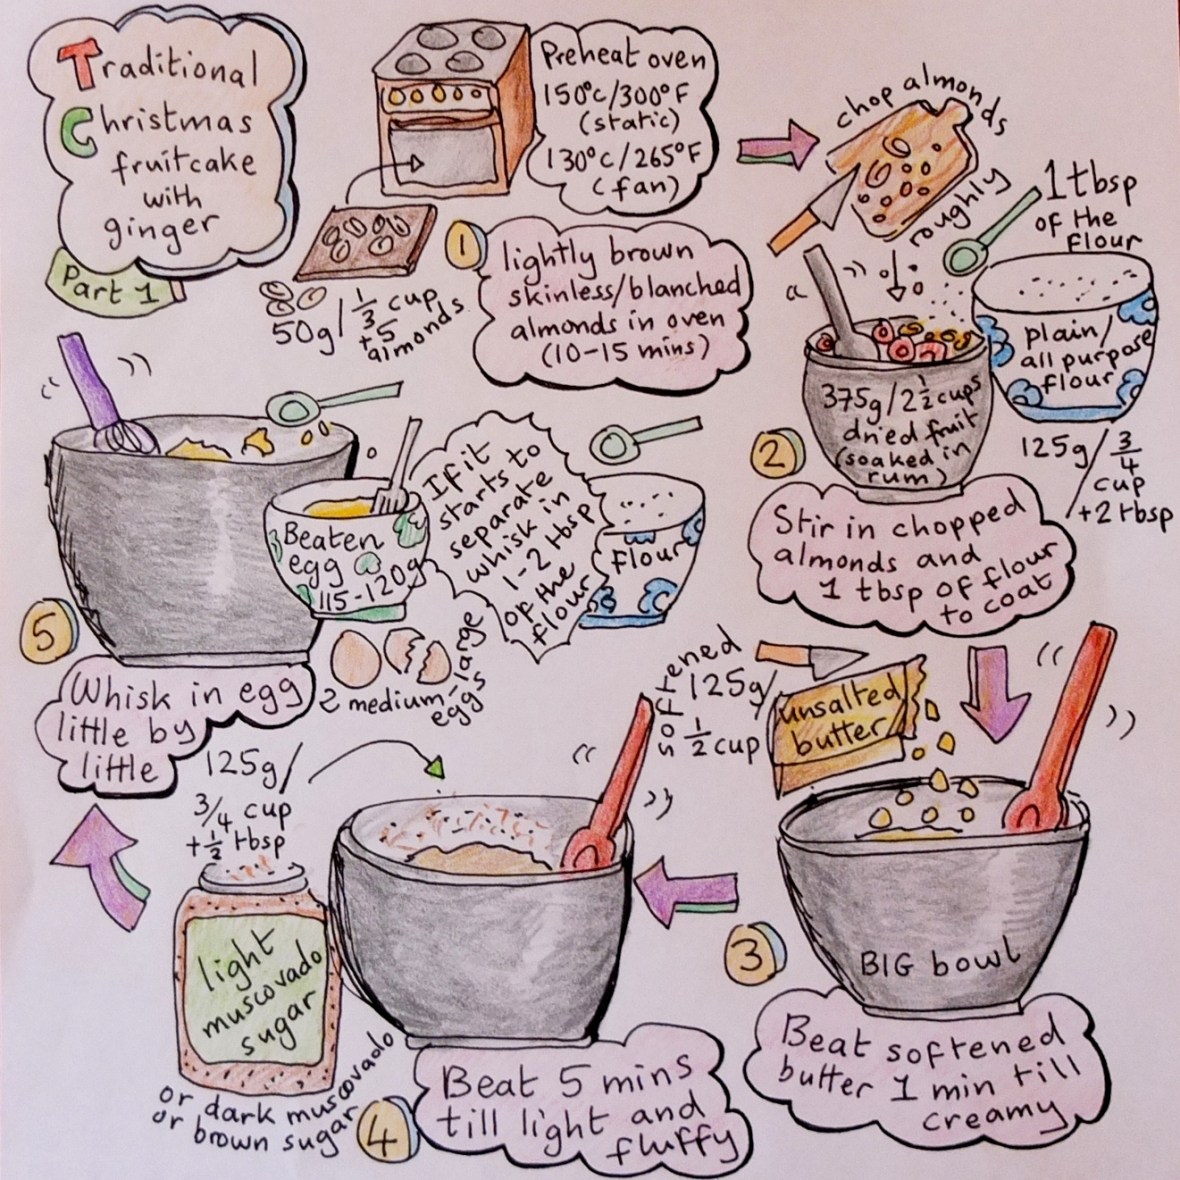 Traditional
Christmas
fruitcake
with
ginger
Part 1
Preheat oven
150°C/300°F
(static)
130°C/265°F
(fan)
50g/1/3 cup
+5
almonds
1
lightly brown
skinless/blanched
almonds in oven
(10-15 mins)
chop almonds
roughly
1 tbsp
of the
flour
plain/
all purpose
flour
125g/3/4
cup
+2 tbsp
375g/2 1/2 cups
dried fruit
(soaked in
rum)
2
Stir in chopped
almonds and
1 tbsp of flour
to coat
softened
125g/
1/2 cup
unsalted
butter
BIG bowl
3
Beat softened
butter 1 min till
creamy
125g/
3/4 cup
+1/2 tbsp
light
muscovado
sugar
or dark muscovado
or brown sugar
4
Beat 5 mins
till light and
fluffy
Beaten
egg
115-120g
2 medium-large
eggs
If it
starts to
separate
whisk in
1-2 tbsp
of the
flour
flour
5
Whisk in egg
little by
little